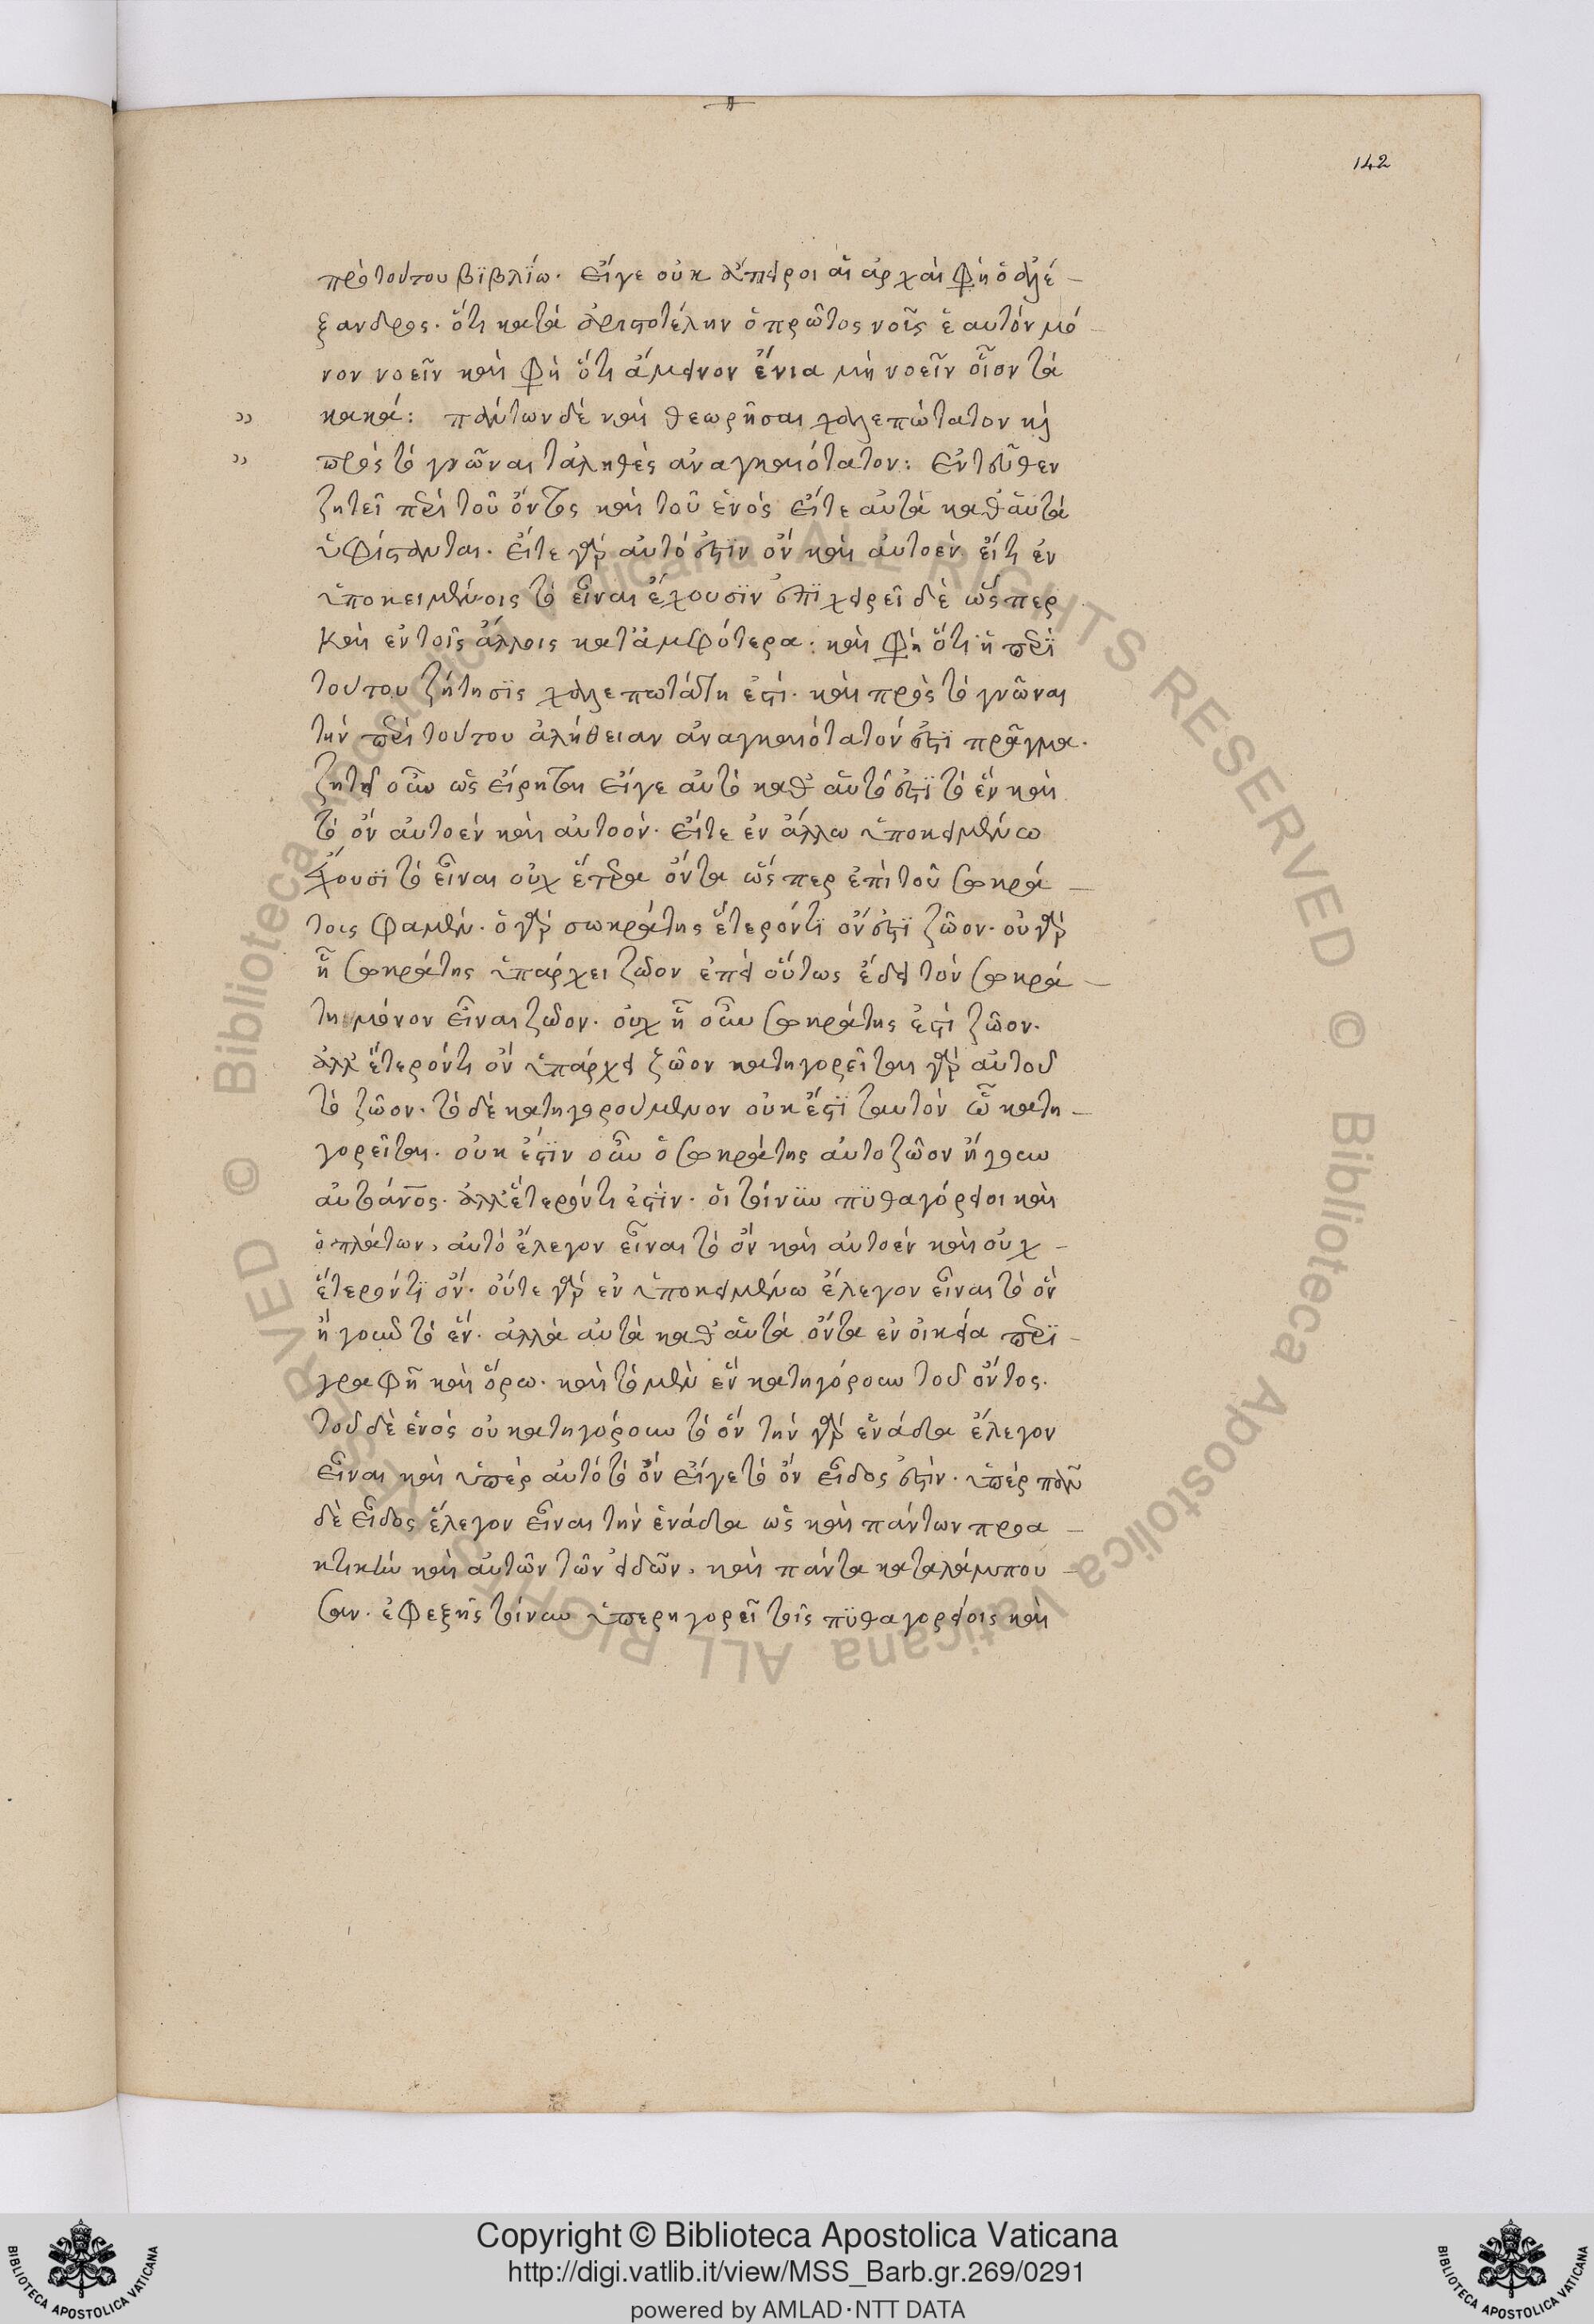 142
πρὸ τούτου βϊβλΐω. εἴγε οὐκ ἄπειροι αἱ ἀρχαὶ φη ὁ ἀλέ-
ξανδρος. ὅτι κατὰ ἀριστοτέλην ὁ πρῶτος νοῦς ἑαυτὸν μό-
νον νοεῖν καὶ φη ὅτι ἄμεινον ἔνια μὴ νοεῖν οἷον τὰ
κακά: πάντων δὲ καὶ θεωρῆσαι χαλεπώτατον κὶ
πρὸς τὸ γνῶναι τἀληθὲς ἀναγκαιότατον: Ἐντεῦθεν
ζητεῖ περὶ τοῦ ὄντος καὶ τοῦ ἑνὸς εἴτε αὐτὰ καθ' αὑτὰ
ὑφίστανται. εἴτε γὰρ αὐτό ἐστϊν ὂν καὶ αὐτοὲν εἴτι ἐν
ὑποκειμένοις τὸ εἶναι ἔχουσϊν ἐπϊχειρεῖ δὲ ὥσπερ
καὶ ἐν τοῖς ἄλλοις κατ' ἀμφότερα: καὶ φη ὅτι ἡ περὶ
τούτου ζήτησϊς χαλεπωτάτη ἐστί. καὶ πρὸς τὸ γνῶναι
τὴν περὶ τούτου ἀλήθειαν ἀναγκαιότατόν ἐστϊ πρᾶγμα.
ζητεῖ οὖν ὡς εἴρηται εἴγε αὐτὸ καθ' αὑτό ἐστϊ τὸ ἓν καὶ
τὸ ὂν αὐτοὲν καὶ αὐτοόν. εἴτε ἐν ἄλλω ὑποκειμένω
ἔχουσϊ τὸ εἶναι οὐχ ἕτερα ὄντα ὥσπερ ἐπὶ τοῦ σωκρά-
τοις φαμέν. ὁ γὰρ σωκράτης ἕτερόντϊ ὄν ἐστϊ ζῶον. οὐ γὰρ
ἧ σωκράτης ὑπάρχει ζῶον ἐπεὶ οὕτως ἔδει τὸν σωκρά-
τη μόνον εἶναι ζῶον. οὐχ ἧ οὖν σωκράτης ἐστὶ ζῶον.
ἀλλ' ἕτερόντι ὂν ὑπάρχει ζῶον κατηγορεῖται γὰρ αὐτοῦ
τὸ ζῶον. τὸ δὲ κατηγορούμενον οὐκ ἔστϊ ταυτὸν ᾧ κατη-
γορεῖται. οὐκ ἔστϊν οὖν ὁ σωκράτης αὐτοζῶον ἤγουν
αὐτάνος. ἀλλ' ἕτερόντι ἐστὶν. οἱ τοίνυν πϋθαγόρειοι καὶ
ὁ πλάτων, αὐτὸ ἔλεγον εἶναι τὸ ὂν καὶ αὐτοὲν καὶ οὐχ-
ἕτερόντϊ ὄν. οὔτε γὰρ ἐν ὑποκειμένω ἔλεγον εἶναι τὸ ὂν
ἤγουν τὸ ἕν. ἀλλὰ αὐτὰ καθ' αὑτὰ ὄντα ἐν οἰκεία περϊ-
γραφῆ καὶ ὅρω. καὶ τὸ μὲν ἓν κατηγόρουν τοῦ ὄντος.
τοῦ δὲ ἑνὸς οὐ κατηγόρουν τὸ ὄν τὴν γὰρ ἑνάδα ἔλεγον
εἶναι καὶ ὑπὲρ αὐτὸ τὸ ὂν εἴγε τὸ ὂν εἶδος ἐστίν. ὑπὲρ πᾶν
δὲ εἶδος ἔλεγον εἶναι τὴν ἑνάδα ὡς καὶ πάντων πρα-
κτικὴν καὶ αὐτῶν τῶν εἰδῶν, καὶ πάντα καταλάμπου-
σαν. ἐφεξῆς τοίνυν ὑπερηγορεῖ τοῖς πϋθαγορείοις καὶ
Copyright © Biblioteca Apostolica Vaticana
http://digi.vatlib.it/view/MSS_Barb.gr.269/0291
powered by AMLAD·NTT DATA